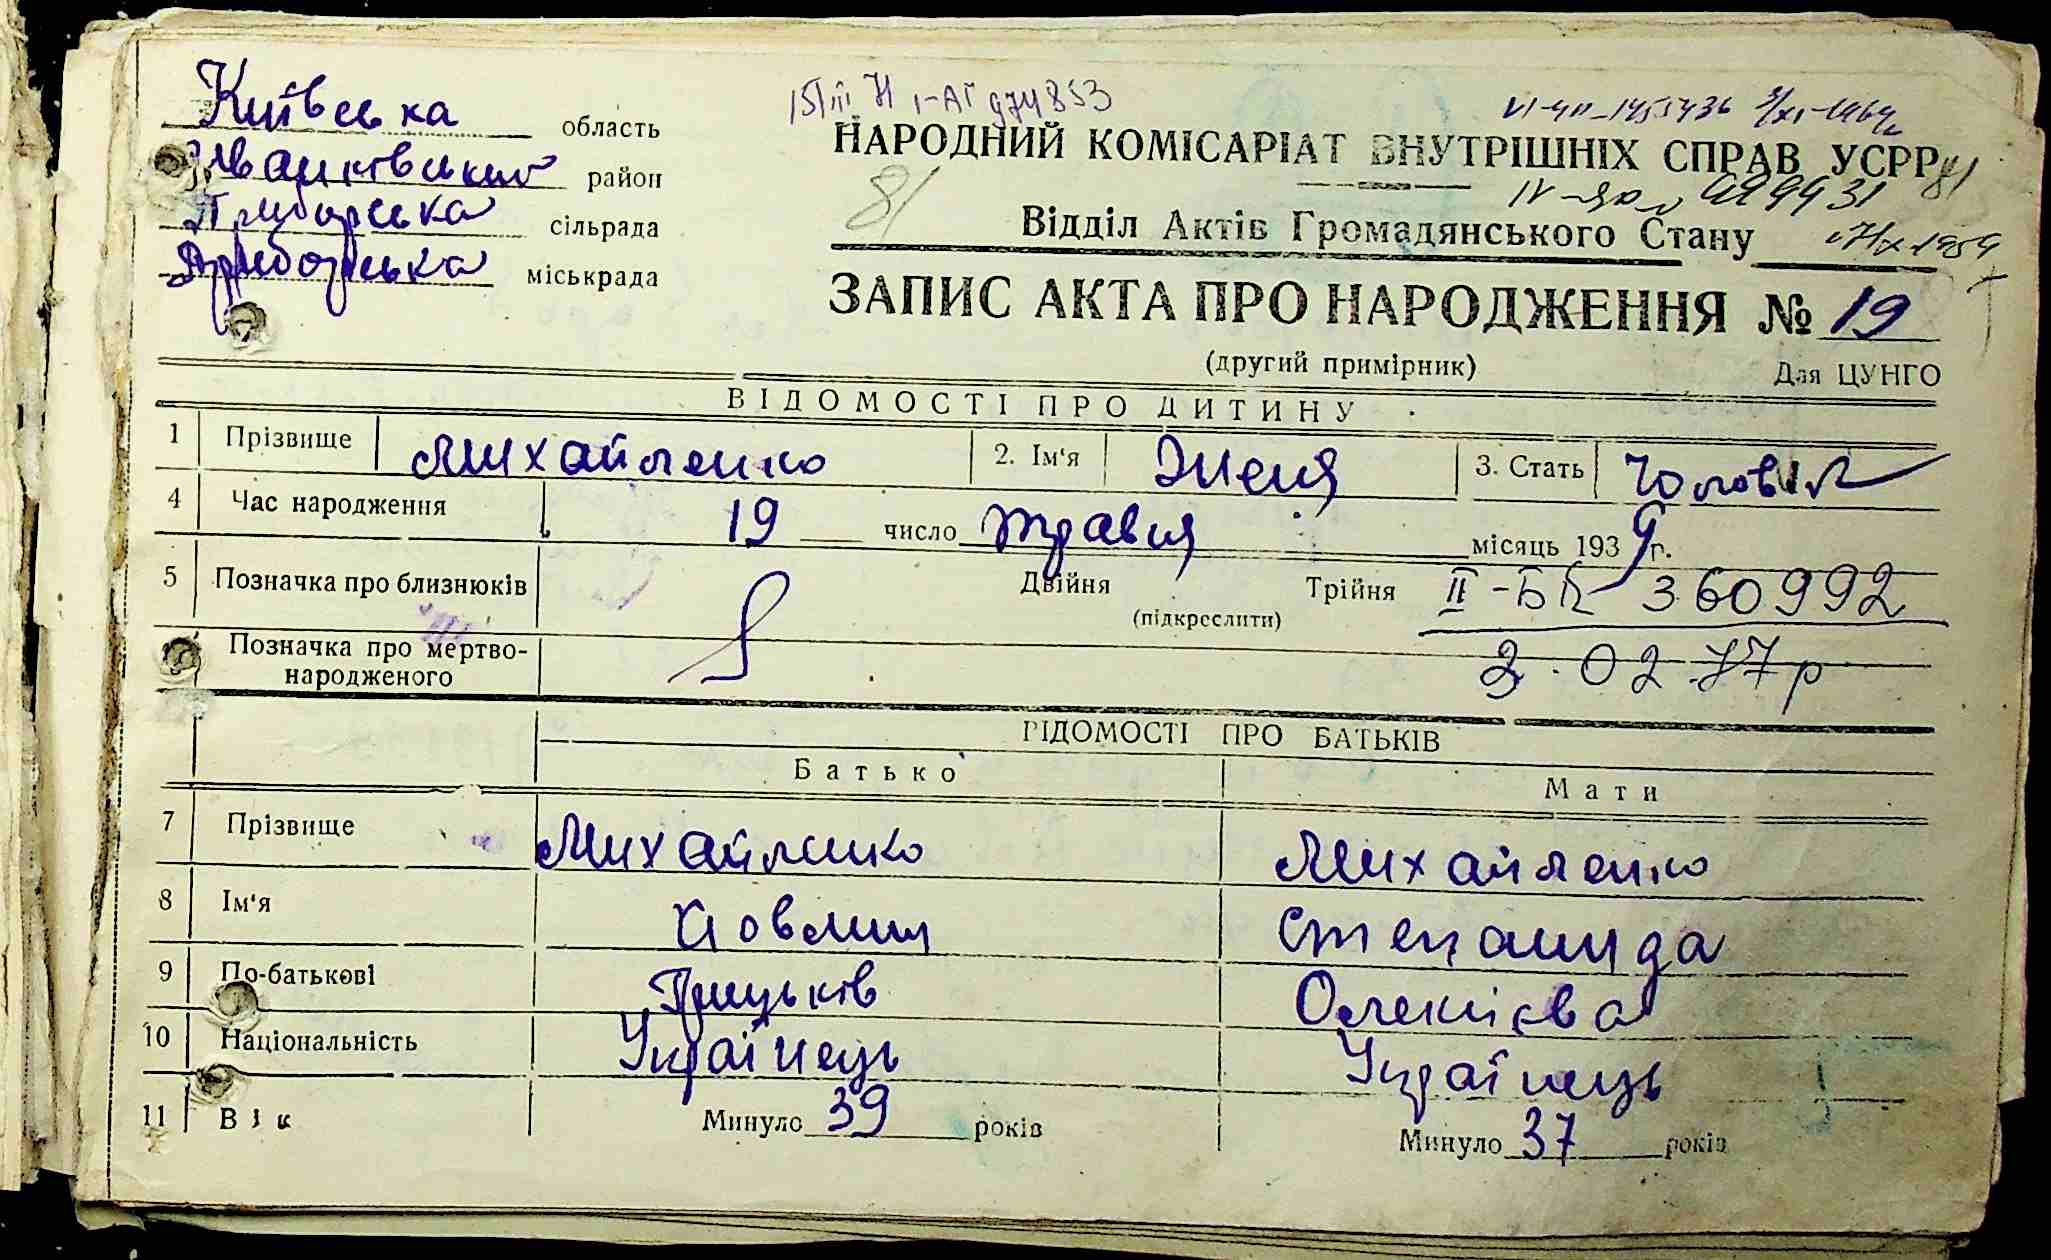 Київська область
Іванківський район
Приборська сільрада
Приборська міськрада
974853
НАРОДНИЙ КОМІСАРІАТ ВНУТРІШНІХ СПРАВ УСРР
81
Відділ Актів Громадянського Стану
ЗАПИС АКТА ПРО НАРОДЖЕННЯ № 19
(другий примірник) Для ЦУНГО
ВІДОМОСТІ ПРО ДИТИНУ
1 Прізвище Михайленко 2. Ім'я Женя 3. Стать Чоловіч
4 Час народження 19 число травня місяць 1939 р.
5 Позначка про близнюків Двійня Трійня
(підкреслити)
II-БК 360992
Позначка про мертво-
народженого
2.02.77р
ВІДОМОСТІ ПРО БАТЬКІВ
Батько Мати
7 Прізвище Михайленко Михайленко
8 Ім'я Степанида
9 По-батькові Грицьків Олексієва
10 Національність Українець Українець
11 Вік Минуло 39 років Минуло 37 років